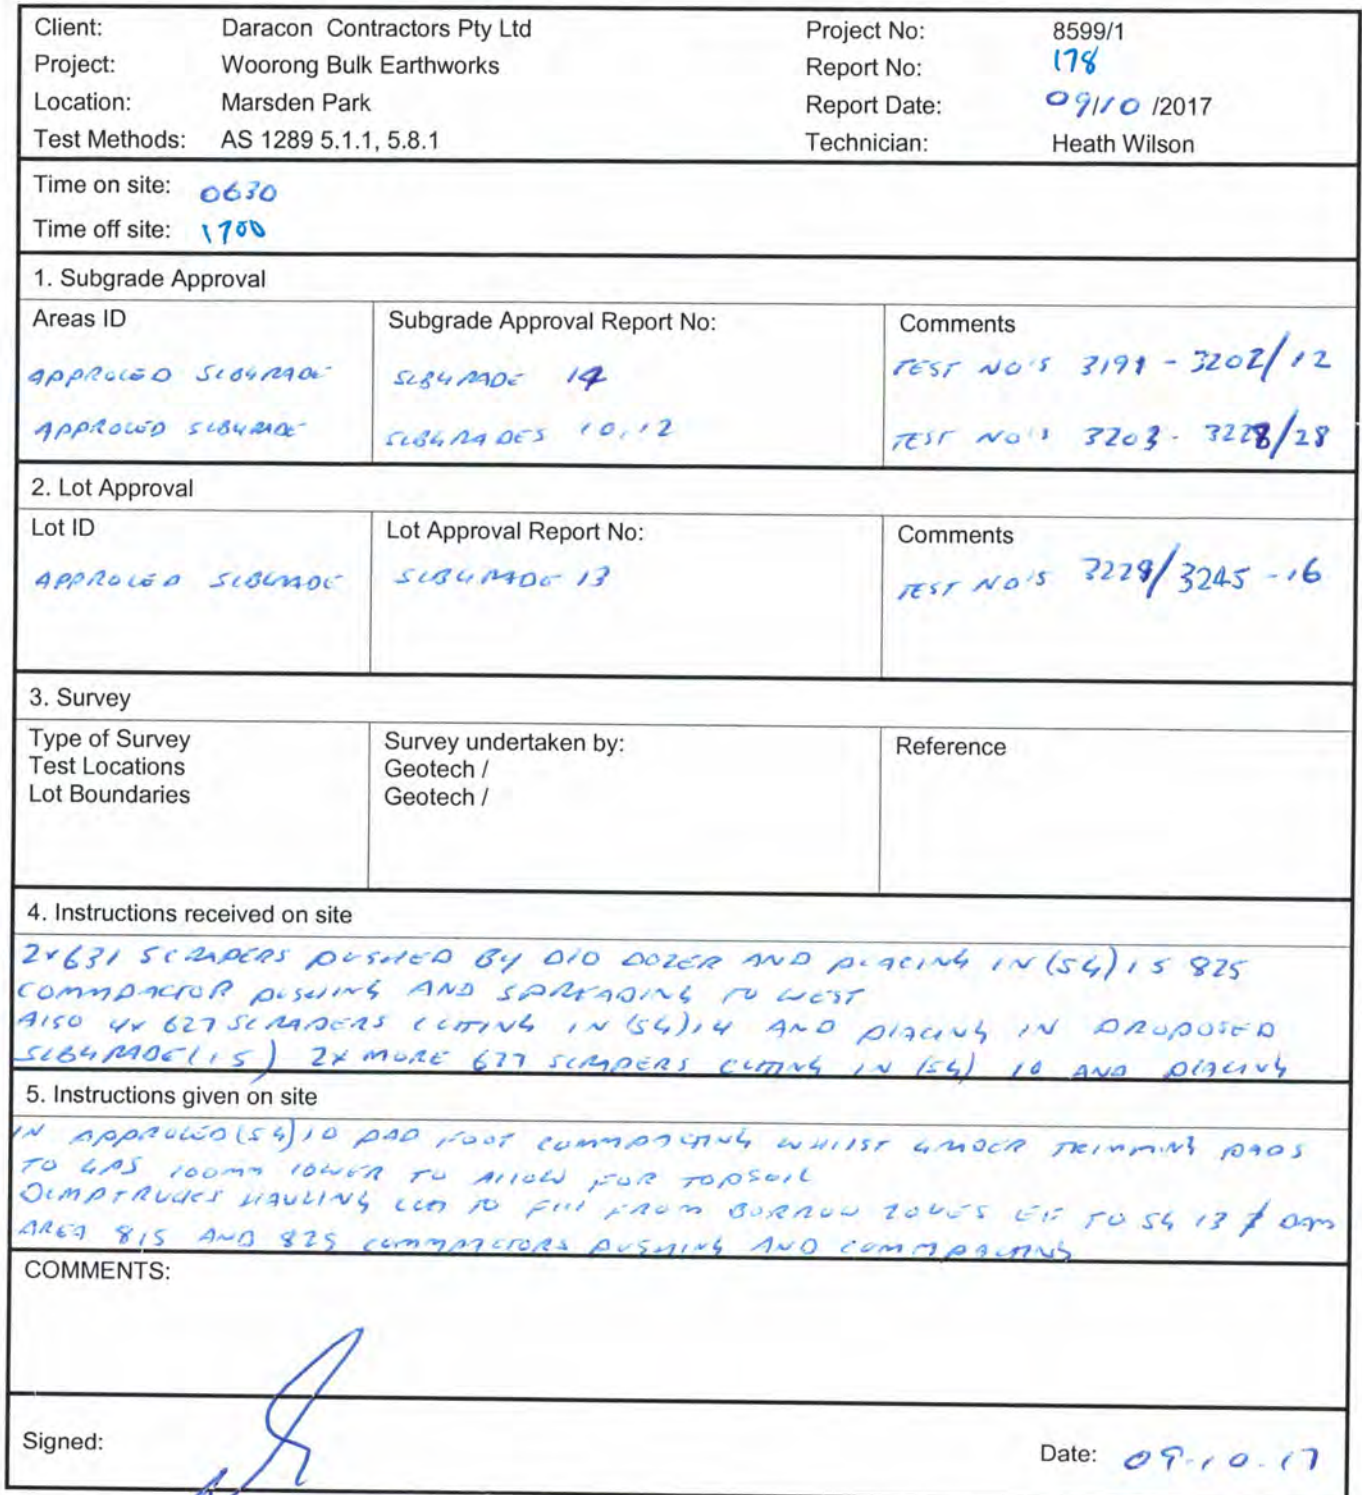 Client: Daracon Contractors Pty Ltd Project No: 8599/1
Project: Woorong Bulk Earthworks Report No: 178
Location: Marsden Park Report Date: 09/10 /2017
Test Methods: AS 1289 5.1.1, 5.8.1 Technician: Heath Wilson
Time on site: 0630
Time off site: 1700
1. Subgrade Approval
Areas ID Subgrade Approval Report No: Comments
APPROVED SUBGRADE SUBGRADE 14 TEST NO'S 3191 - 3202/12
APPROVED SUBGRADE SUBGRADES 10,12 TEST NO'S 3203 - 3228/28
2. Lot Approval
Lot ID Lot Approval Report No: Comments
APPROVED SUBGRADE SUBGRADE 13 TEST NO'S 3229/3245 -16
3. Survey
Type of Survey Survey undertaken by: Reference
Test Locations Geotech /
Lot Boundaries Geotech /
4. Instructions received on site
2x631 SCRAPERS PUSHED BY D10 DOZER AND PLACING IN (SG)15 825
COMMPACTOR PUSHING AND SPREADING TO WEST
ALSO 4x 627 SCRAPERS CUTTING IN (SG)14 AND PLACING IN PROPOSED
SUBGRADE(15) 2x MORE 627 SCRAPERS CUTTING IN (SG) 10 AND PLACING
5. Instructions given on site
IN APPROVED(SG)10 PAD FOOT COMMPACTING WHILST GRADER TRIMMING PADS
TO GPS 100mm LOWER TO ALLOW FOR TOPSOIL
DUMPTRUCKS HAULING CUT TO FILL FROM BORROW ZONES TO SG 13 DAM
AREA 815 AND 825 COMMPACTORS PUSHING AND COMMPACTING
COMMENTS:
Signed: Date: 09.10.17